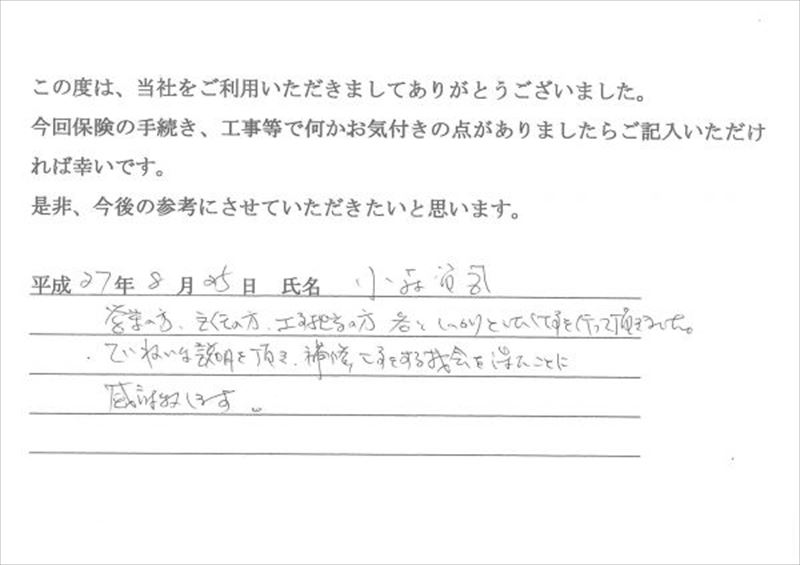 この度は、当社をご利用いただきましてありがとうございました。
今回保険の手続き、工事等で何かお気付きの点がありましたらご記入いただけ
れば幸いです。
是非、今後の参考にさせていただきたいと思います。
平成27年8月25日 氏名 小森
営業の方、工事担当の方 皆しっかりとした工事を行って頂きました。
ていねいな説明を頂き、補修工事をする機会を得たことに
感謝致します。